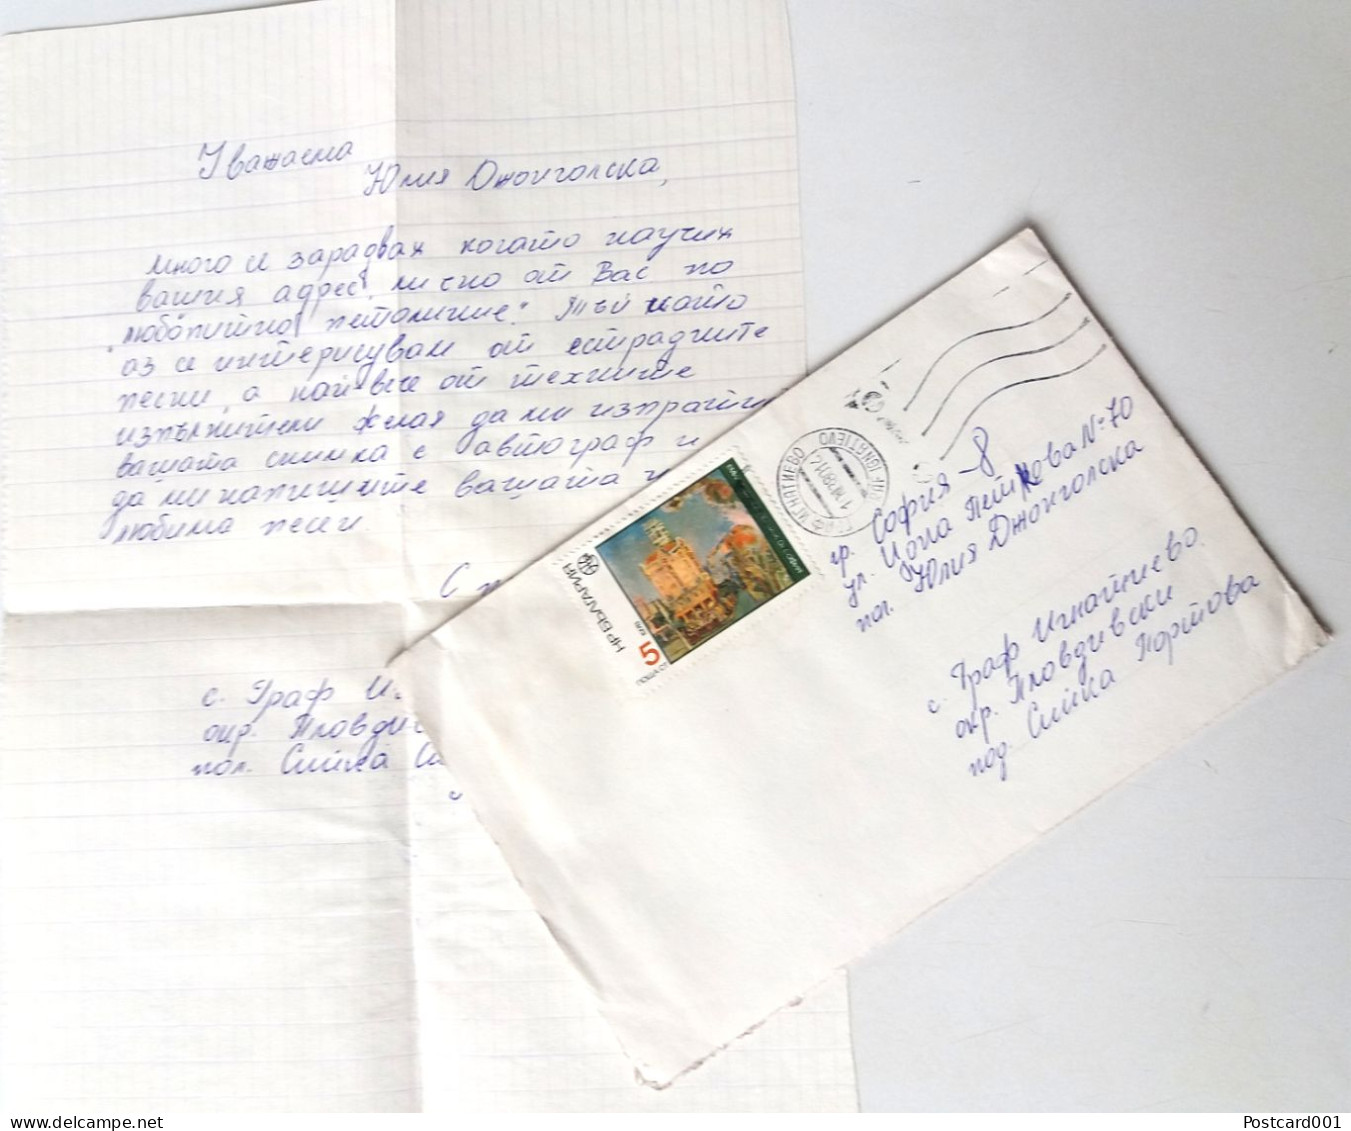 Уважаема
Юлия Джонголска,
Много се зарадвах когато научих
вашия адрес. от Вас по
"любопитно петолиние". Тъй като
аз се интерисувам от естрадните
песни, а най вече от техните
изпълнители желая да ми изпрати
вашата снимка с автограф и
да ми напишите вашата
любима песни.
С
с. Граф
окр. Пловдив
пол. Сийка
НР БЪЛГАРИЯ
ПОЩА 5 СТ
ГРАФ ИГНАТИЕВО
гр. София - 8
ул. Цона Петкова № 70
пол. Юлия Джонголска
с. Граф Игнатиево.
окр. Пловдивски
под. Сийка Портова
Postcard001